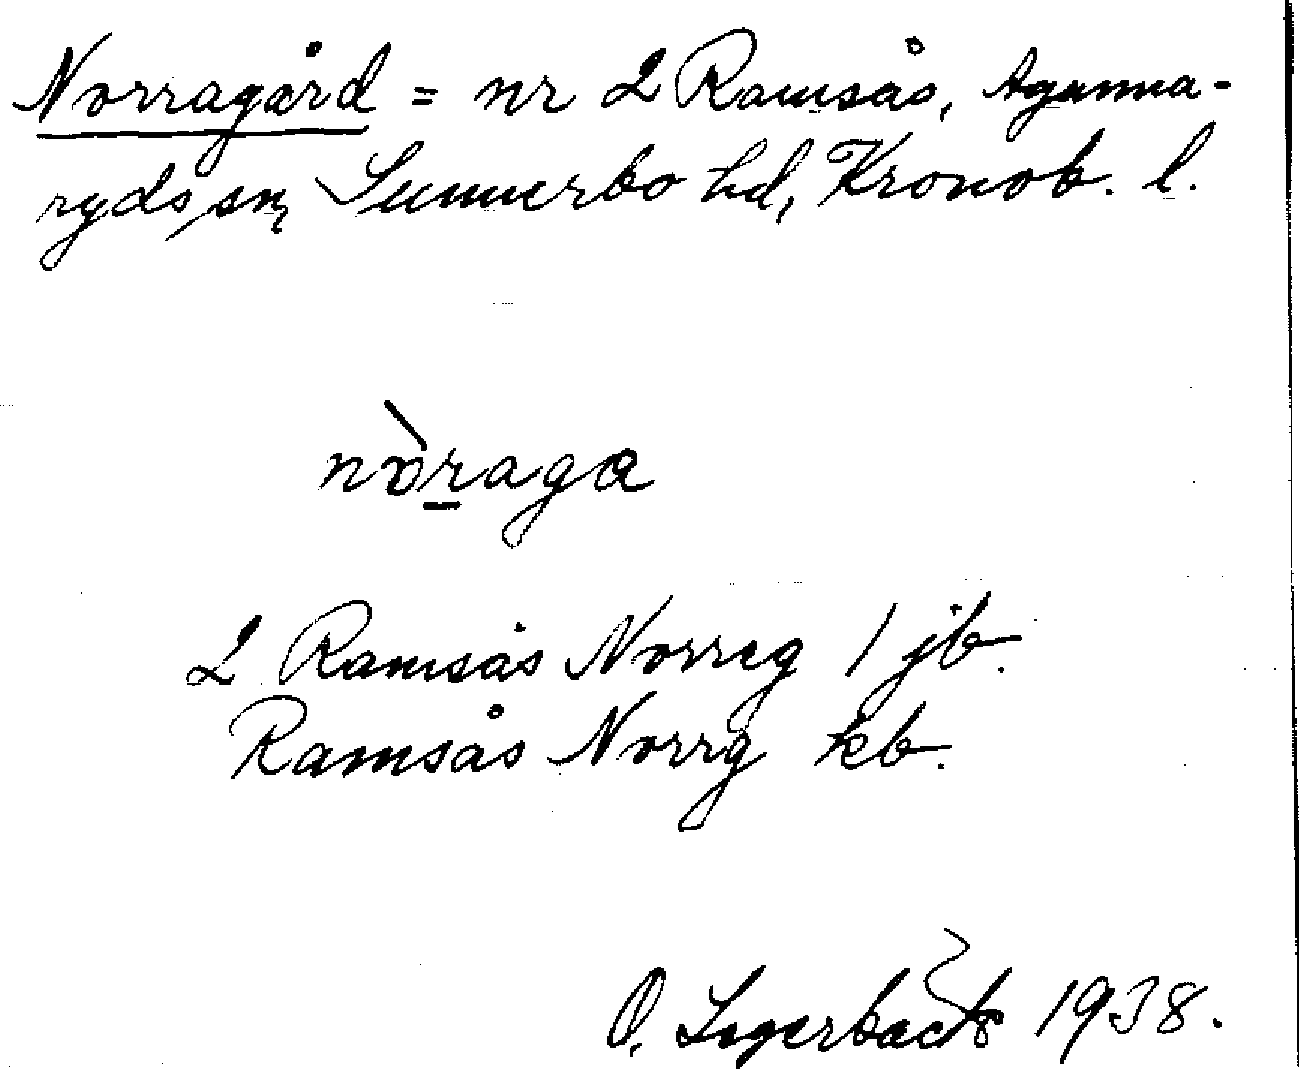 Norragård = nr 2 Ramsås, Agunna-
ryds sn, Sunnerbo hd, Kronob. l.
nòraga
2 Ramsås Norreg 1 jb.
Ramsås Norrg kb.
O. Lagerbäck 1938.